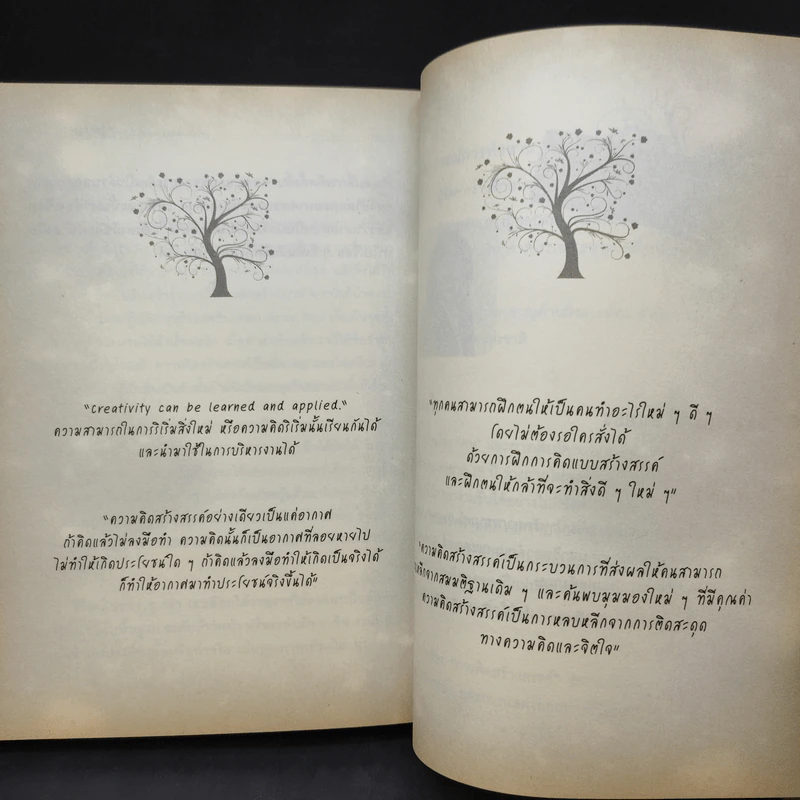 "Creativity can be learned and applied."
ความสามารถในการริเริ่มสิ่งใหม่ หรือความคิดริเริ่มนั้นเรียนกันได้
และนำมาใช้ในการบริหารงานได้
"ความคิดสร้างสรรค์อย่างเดียวเป็นแค่อากาศ
ถ้าคิดแล้วไม่ลงมือทำ ความคิดนั้นก็เป็นอากาศที่ลอยหายไป
ไม่ทำให้เกิดประโยชน์ใด ๆ ถ้าคิดแล้วลงมือทำให้เกิดเป็นจริงได้
ก็ทำให้อากาศมาทำประโยชน์จริงขึ้นได้"
"ทุกคนสามารถฝึกตนให้เป็นคนทำอะไรใหม่ ๆ ดี ๆ
โดยไม่ต้องรอใครสั่งได้
ด้วยการฝึกการคิดแบบสร้างสรรค์
และฝึกตนให้กล้าที่จะทำสิ่งดี ๆ ใหม่ ๆ"
"ความคิดสร้างสรรค์เป็นกระบวนการที่ส่งผลให้คนสามารถ
หลีกจากสมมติฐานเดิม ๆ และค้นพบมุมมองใหม่ ๆ ที่มีคุณค่า
ความคิดสร้างสรรค์เป็นการหลบหลีกจากการติดสะดุด
ทางความคิดและจิตใจ"